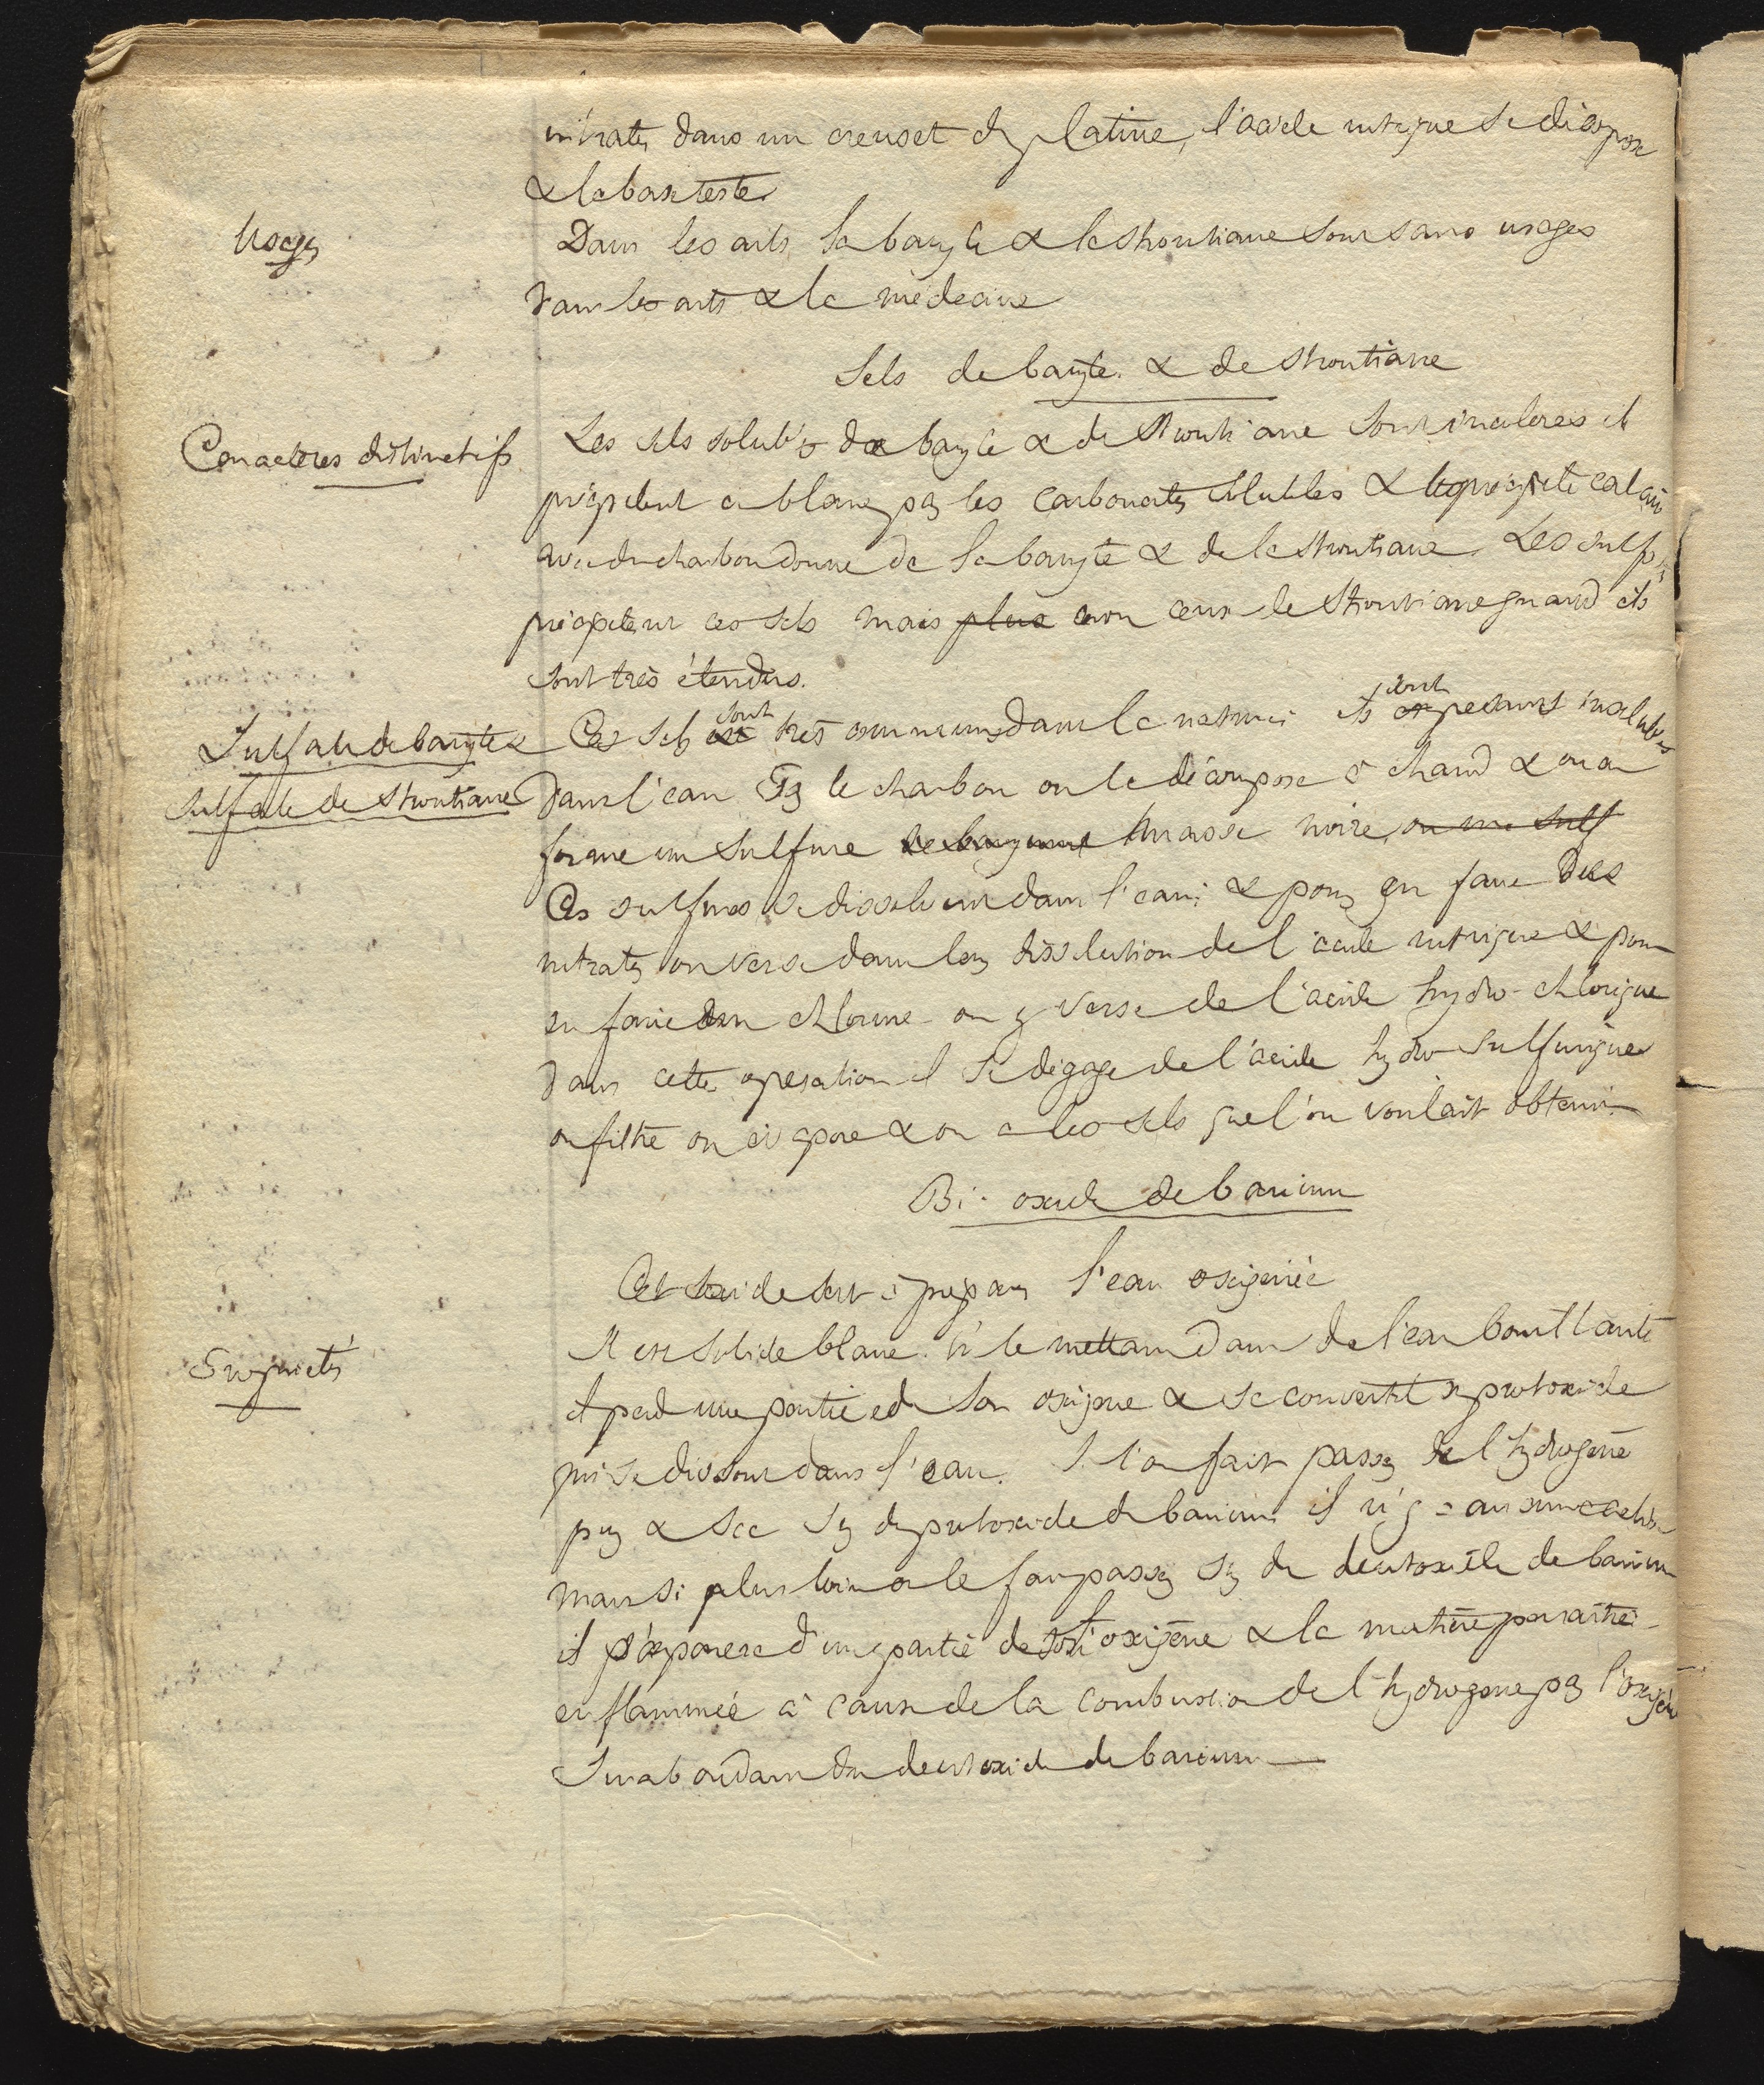 nitrates dans un creuset de platine, l'acide nitrique se décompose
& la base reste
Usages
Dans les arts la baryte & la strontiane sont sans usages
dans les arts & la médecine
Sels de baryte & de strontiane
Caractères distinctifs
Les sels solubles de baryte & de strontiane sont incolores et
précipitent en blanc par les carbonates solubles & le précipité calciné
avec du charbon donne de la baryte & de la strontiane. Les sulf
précipitent ces sels mais plus non ceux de strontiane quand ils
sont très étendus.
Sulfate de baryte &
sulfate de strontiane
Ces sels sont très communs dans la nature ils sont pesants insolubles
dans l'eau Par le charbon on le décompose à chaud & on en
forme un sulfure masse noire, ou un sulf
Ces sulfures se dissolvent dans l'eau; & pour en faire des
nitrates on verse dans leur dissolution de l'acide nitrique & pour
en faire un chlorure on y verse de l'acide hydro-chlorique
dans cette opération il se dégage de l'acide hydro-sulfurique
on filtre on évapore & on a les sels que l'on voulait obtenir
Bi-oxide de barium
Cet oxide sert à préparer l'eau oxigénée
Propriétés
Il est solide blanc. En le mettant dans de l'eau bouillante
il perd une partie de son oxigène & se convertit en protoxide
qui se dissout dans l'eau. Si l'on fait passer de l'hydrogène
pur & sec sur du protoxide de barium il n'y a aucune action
mais si plus loin on le fait passer sur du deutoxide de barium
il s'empare d'une partie de son oxigène & la matière paraître
enflammée à cause de la combustion de l'hydrogène par l'oxigène
surabondant du deutoxide de barium